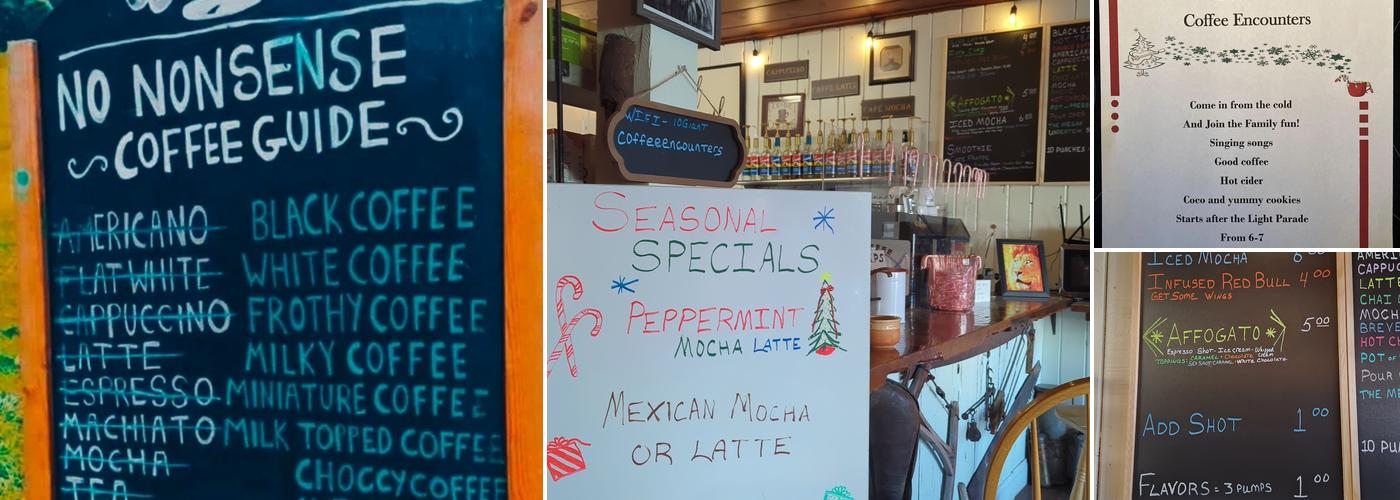 NO NONSENSE
COFFEE GUIDE
AMERICANO BLACK COFFEE
FLAT WHITE WHITE COFFEE
CAPPUCCINO FROTHY COFFEE
LATTE MILKY COFFEE
ESPRESSO MINIATURE COFFEE
MACHIATO MILK TOPPED COFFEE
MOCHA CHOCCY COFFEE
TEA
WIFI - 10Giant
Coffeeencounters
CAPPUCCINO
CAFFE LATTE
CAFÉ MOCHA
AFFOGATO
ICED MOCHA
SMOOTHIE
SEASONAL
SPECIALS
PEPPERMINT
MOCHA LATTE
MEXICAN MOCHA
OR LATTE
Coffee Encounters
Come in from the cold
And Join the Family fun!
Singing songs
Good coffee
Hot cider
Coco and yummy cookies
Starts after the Light Parade
From 6-7
ICED MOCHA 6 00
INFUSED RED BULL 4 00
GET SOME WINGS
AFFOGATO 5 00
Espresso Shot - Ice cream - Whipped Cream
TOPPINGS: CARAMEL - Chocolate
SEA SALT CARAMEL - WHITE CHOCOLATE
ADD SHOT 1 00
FLAVORS = 3 PUMPS 1 00
AMERI
CAPPUC
LATTE
CHAI
MOCH
BREVE
HOT C
POT OF
POUR
THE ME
10 PU